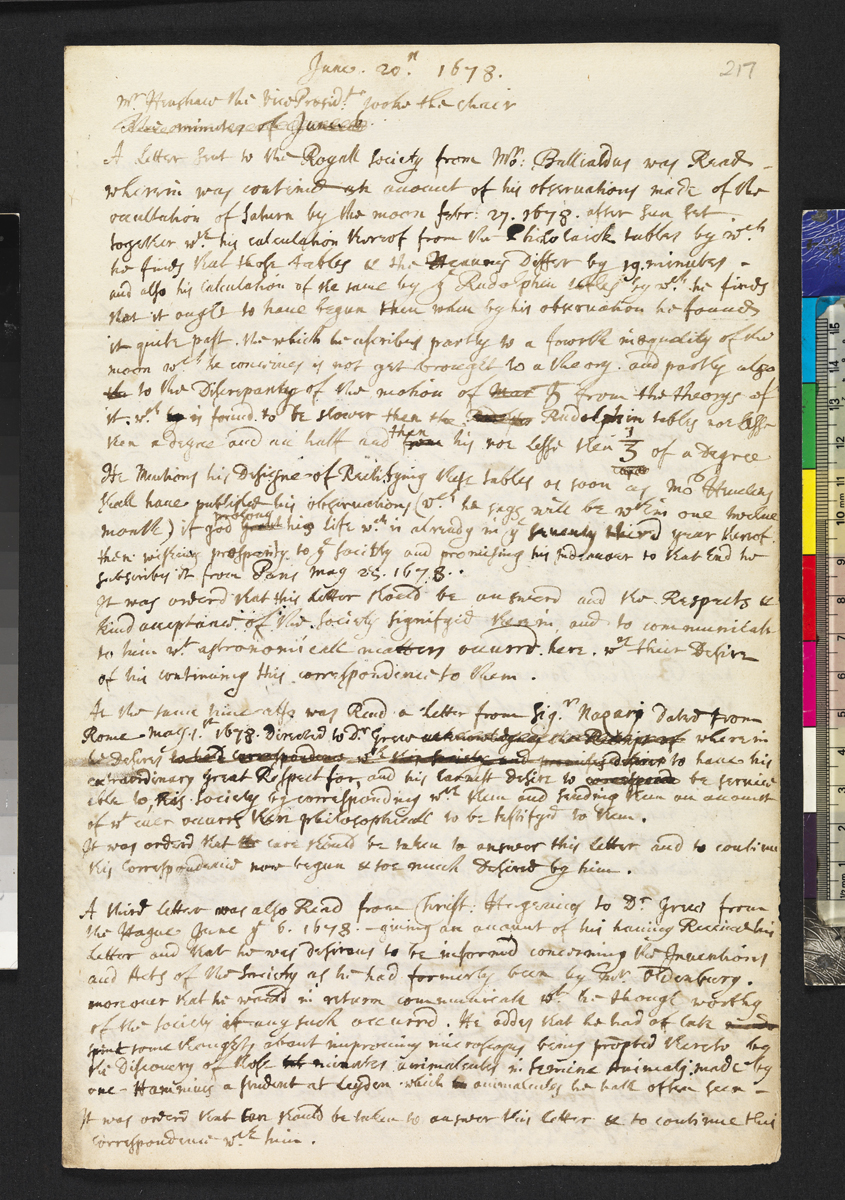 June. 20.th 1678.
217
Mr. Henshaw the vice Presidt. tooke the chair
The minutes of June
A Letter sent to the Royall Society from Mr: Bullialdus was Read
wherein was contined an account of his observations made of the
occultation of Saturn by the moon febr: 27. 1678. after sun set
together wth. his calculation thereof from the Philolaick tables by wch
he finds that those tables & the Heavens Differ by 19. minutes -
and also his calculation of the same by ye Rudolphin tables by wch. he finds
that it ought to have begun then when by his observation he found
it quite past. the which he ascribes partly to a fourth inequality of the
moon wch he conceives is not yet brought to a theory. and partly also
the to the Discrepanty of the motion of ♄ from the theorys of
it. wch is found to be slower then the Rudolphin tables not lesse
then a degree and an half and then his not lesse then 1/3 of a Degree
He Mentions his Designe of Rectifying these tables as soon as Mr. Hevelius
shall have published his observations (wch he says will be wthin one twelve
month) if god prolong his life wch is already in ye seventy third year thereof.
then wishing prosperity to ye society and promising his Indeavor to that End he
subscribes it from Paris may 25. 1678..
It was orderd that this Letter should be answerd and the Respects &
kind acceptance of the Society signifyed therein and to communicate
to him wt astronomicall matters occurrd. here. wth their Desire
of his continuing this correspondence to them.
At the same time also was Read a Letter from Sigr. Nazari Dated from
Rome 1678. Directed to Dr. Grew acknowledging the Receipt of wherein
he desires to hold correspondence wth this society and to have his
extraordinary great Respect for, and his Earnest desire to correspond be service
able to this Society by corresponding wth them and sending them an account
of wt ever occurrs then philosophicall to be testifyd to them.
It was orderd that the care should be taken to answer this letter and to continue
this Correspondence now begun & soe much Desired by him.
A third letter was also Read from Christ: Hugenius to Dr. Grew from
the Hague June ye 6. 1678. - giving an account of his having Received his
Letter and that he was desirous to be informd concerning the Inventions
and Acts of the Society as he had formerly been by mr. Oldenburg.
moreover that he would in return communicate wt he though worthy
of the society if any such occurrd. He addes that he had of late made
spent some thoughts about improving microscopes being prompted thereto by
the Discovery of those minutes animalcules in semine animalj. made by
one - Hammius a student at Leyden which animalcules he hath often seen -
It was orderd that Care should be taken to answer this letter & to continue this
correspondence wth him.